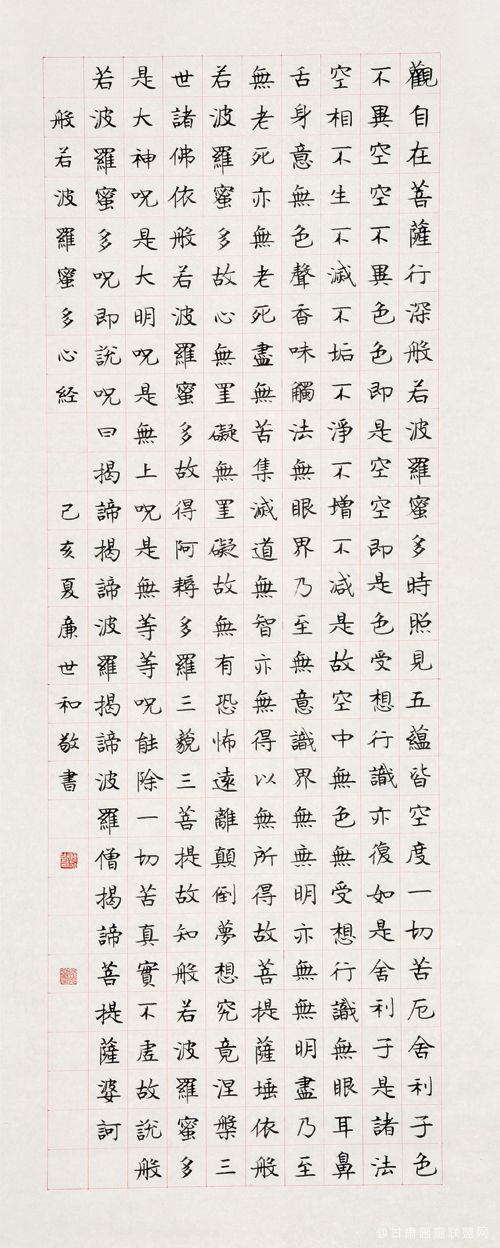 觀自在菩薩行深般若波羅蜜多時照見五蘊皆空度一切苦厄舍利子色
不異空空不異色色即是空空即是色受想行識亦復如是舍利子是諸法
空相不生不滅不垢不淨不增不減是故空中無色無受想行識無眼耳鼻
舌身意無色聲香味觸法無眼界乃至無意識界無無明亦無無明盡乃至
無老死亦無老死盡無苦集滅道無智亦無得以無所得故菩提薩埵依般
若波羅蜜多故心無罣礙無罣礙故無有恐怖遠離顛倒夢想究竟涅槃三
世諸佛依般若波羅蜜多故得阿耨多羅三藐三菩提故知般若波羅蜜多
是大神呪是大明呪是無上呪是無等等呪能除一切苦真實不虛故說般
若波羅蜜多呪即說呪曰揭諦揭諦波羅揭諦波羅僧揭諦菩提薩婆訶
般若波羅蜜多心経 己亥夏廉世和敬書